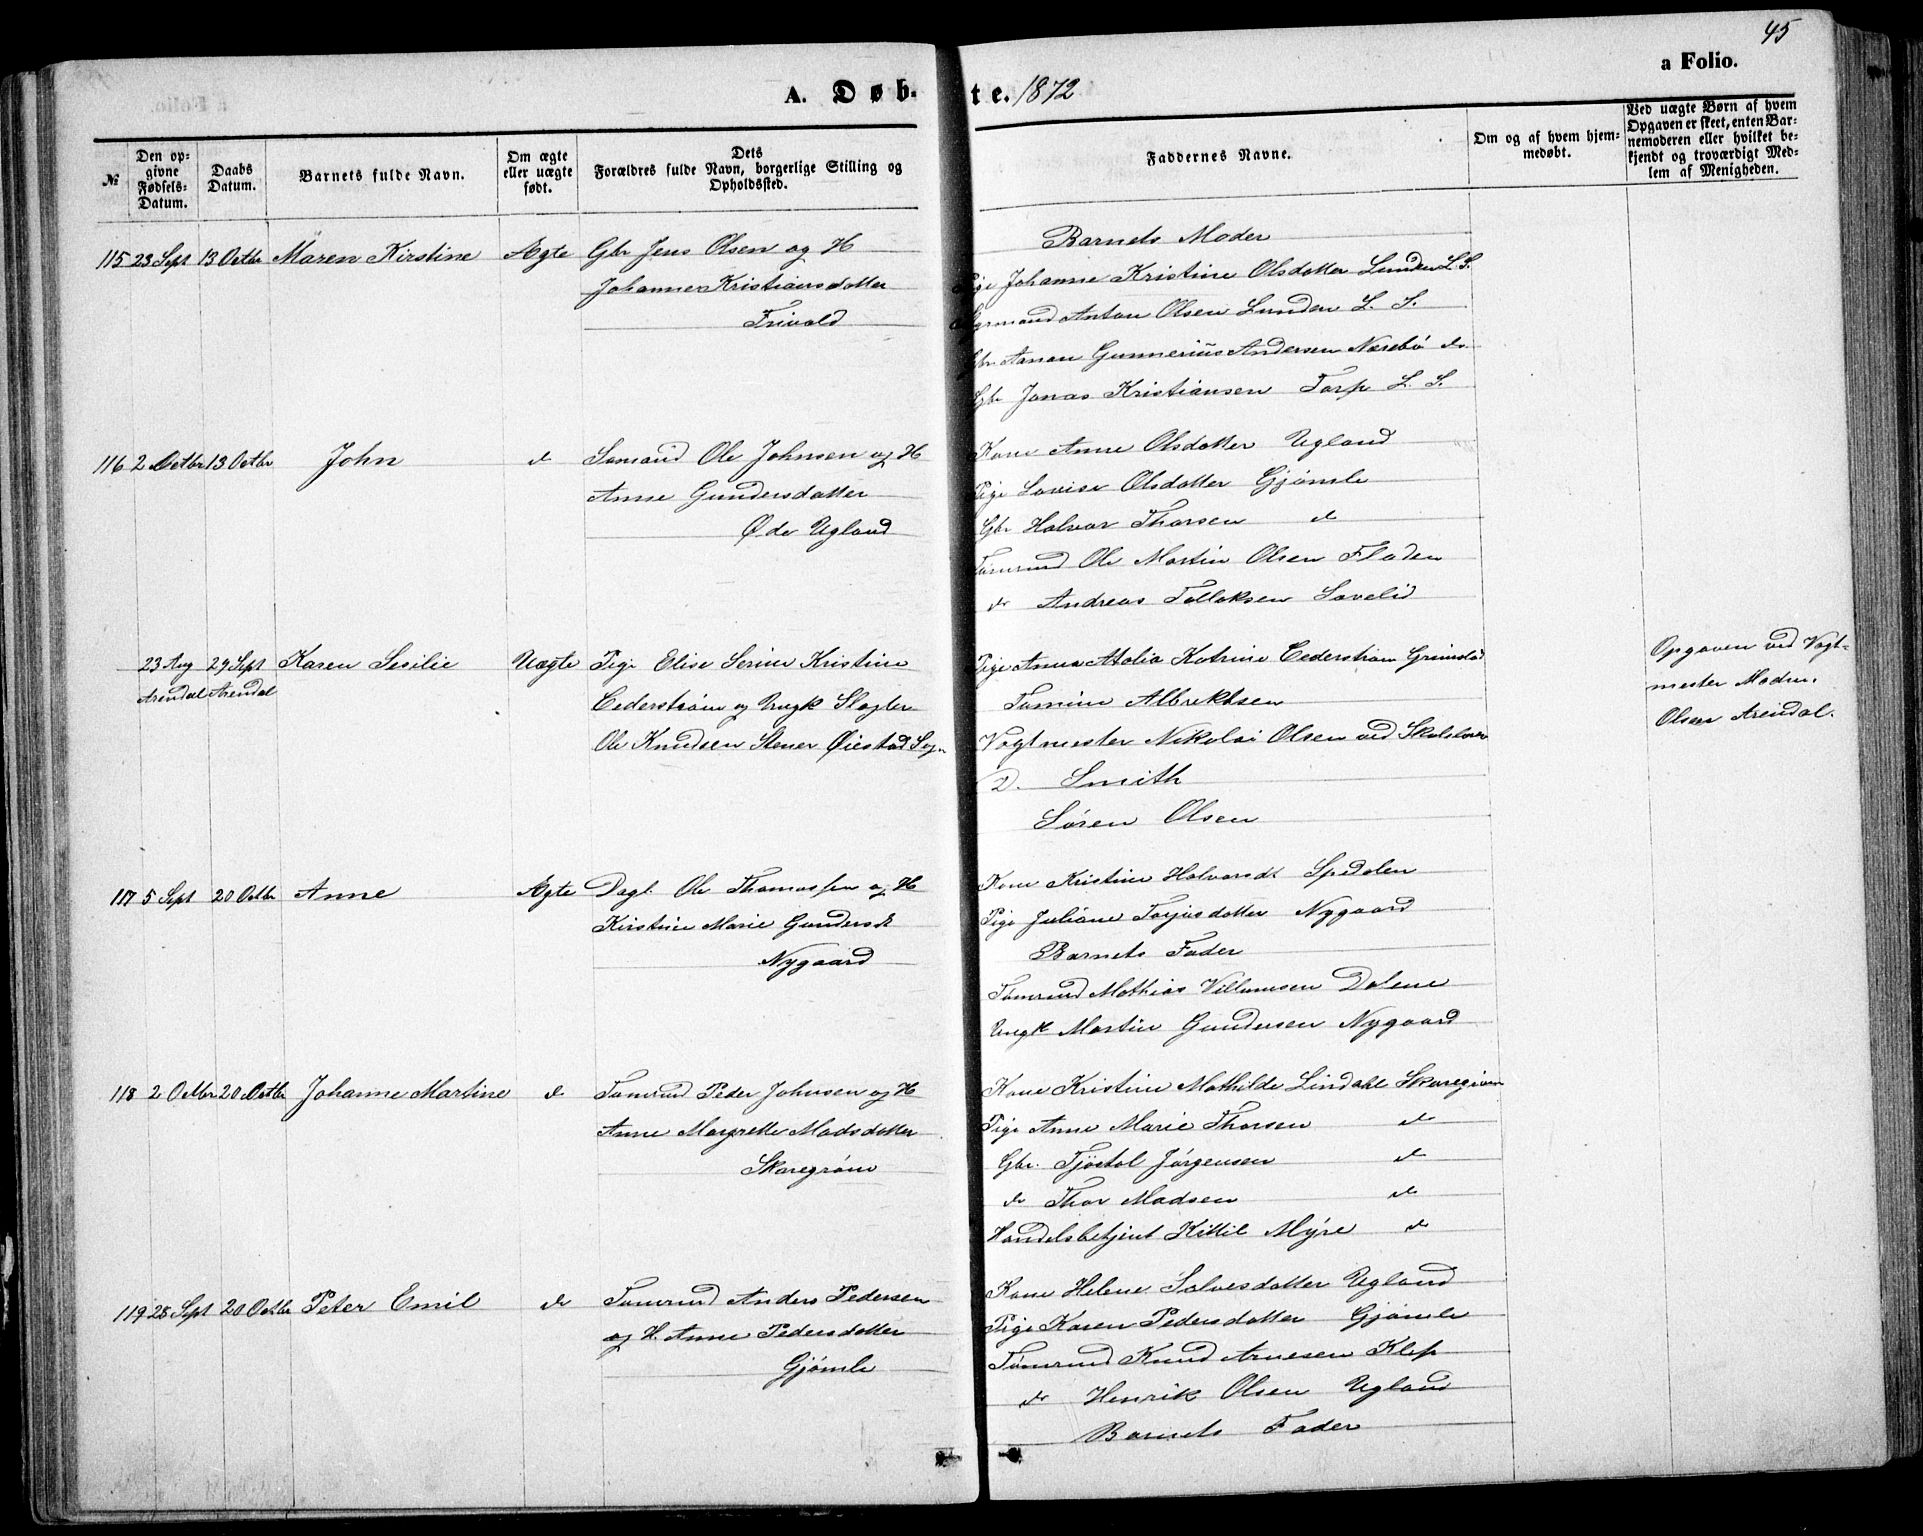 45
a Folio.
A. Døb-
te. 1872
№
Den op-
givne
Fødsels-
Datum.
Daabs
Datum.
Barnets fulde Navn.
Om ægte
eller uægte
født.
Dets
Forældres fulde Navn, borgerlige Stilling og
Opholdssted.
Faddernes Navne.
Om og af hvem hjem-
medøbt.
Ved uægte Børn af hvem
Opgaven er skeet, enten Bar-
nemoderen eller hvilket be-
kjendt og troværdigt Med-
lem af Menigheden.
115 23 Sept 13 Octbr Maren Kirstine Ægte Gbr Jens Olsen og H
Johanne Kristiansdatter
Trivold
Barnets Moder
Pige Johanne Kristine Olsdatter Lunden L. S.
Anton Olsen Lunden L. S.
Gbr Aanon Gunnerius Andersen Nærebö do
Gbr Jonas Kristiansen Torp L. S.
116 2 Octbr 13 Octbr John do Sømand Ole Johnsen og H
Anne Gundersdatter
Øde Ugland
Kone Anne Olsdatter Ugland
Pige Lovise Olsdatter Gjømle
Gbr Halvor Thorsen do
Tømrmd Ole Martin Olsen Floden
do Andreas Tellefsen Savelid
23 Aug 29 Sept Karen Sesilie Uægte Pige Elise Serine Kristine
Arendal Arendal
Cederstrøm og Ungk Slagter
Ole Knudsen Stener Øiestad Sogn
Pige Anna Atalia Katrine Cederstrøm Grimstad
Tomine Albrektsen
Vagtmester Nikolai Olsen ved
D. Smith
Sören Olsen
Opgaven ved Vagt-
mester
Olsen Arendal.
117 5 Sept 20 Octbr Anne Ægte Dagl. Ole Thomassen og H
Kirstine Marie Gundersdt
Nygaard
Kone Kristine Halvorsdt Spedalen
Pige Juliane Torjusdatter Nygaard
Barnets Fader
Tømrmd Mathias Villumsen Dalene
Ungk Martin Gundersen Nygaard
118 2 Octbr 20 Octbr Johanne Martine do Tømrmd Peder Johnsen og H
Anne Margrette Madsdatter
Skaregrøm
Kone Kristine Mathilde Lindahl Skaregrøm
Pige Anne Marie Thorsen do
Gbr. Tjöstol Jörgensen do
do Thor Madsen do
Handelsbetjent Kittil Myre do
119 28 Sept 20 Octbr Peter Emil do Tømrmd Anders Pedersen
og H. Anne Pedersdatter
Gjømle
Kone Helene Salvesdatter Ugland
Pige Karen Pedersdatter Gjømle
Tømrmd Knud Arnesen Klep
do Henrik Olsen Ugland
Barnets Fader